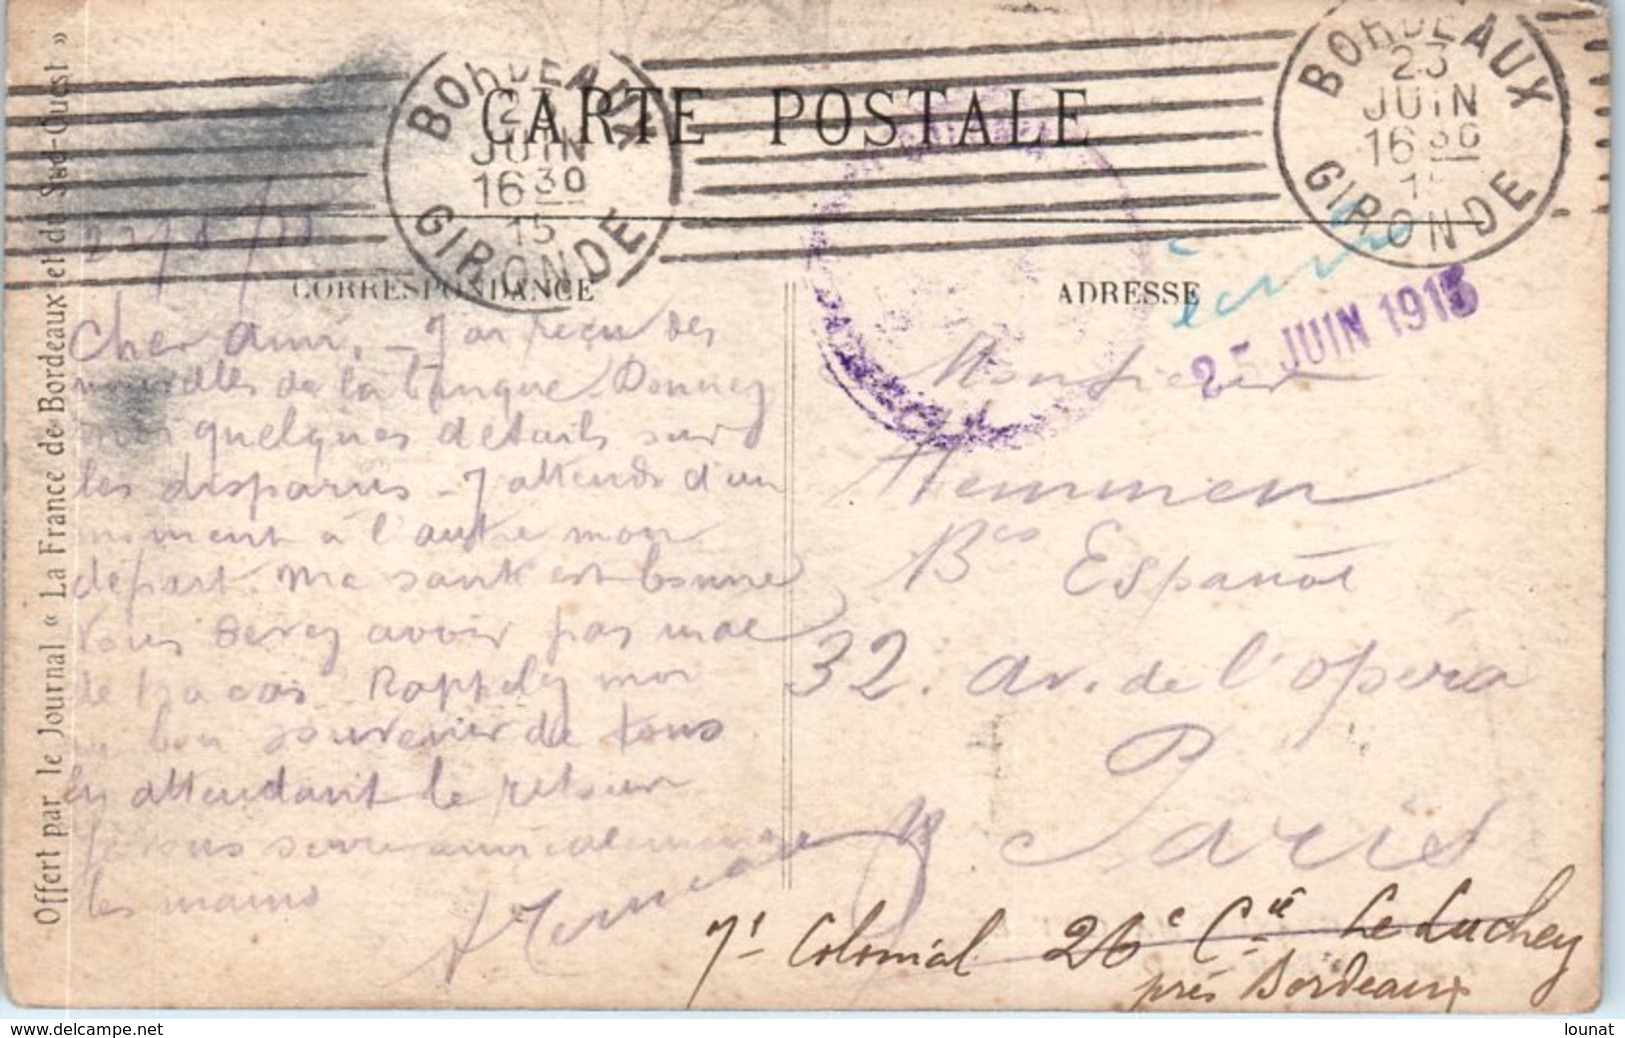 CARTE POSTALE
BORDEAUX
23
JUIN
16 30
15
GIRONDE
BORDEAUX
23
JUIN
16 30
15
GIRONDE
CORRESPONDANCE
ADRESSE
25 JUIN 1915
Cher Ami, - J'ai reçu des
nouvelles de la banque. Donnez
moi quelques détails sur
les disparus - J'attends d'un
moment à l'autre mon
départ. Ma santé est bonne
Vous devez avoir pas mal
de tracas. Rappelez moi
au bon souvenir de tous
En attendant le retour
Je vous serre amicalement
les mains
Monsieur
Hemmen
Bco Español
32. av. de l'opéra
Paris
7e Colonial 26e Cie Le Luchey
près Bordeaux
Offert par le Journal « La France de Bordeaux et du Sud-Ouest »
www.delcampe.net
lounat